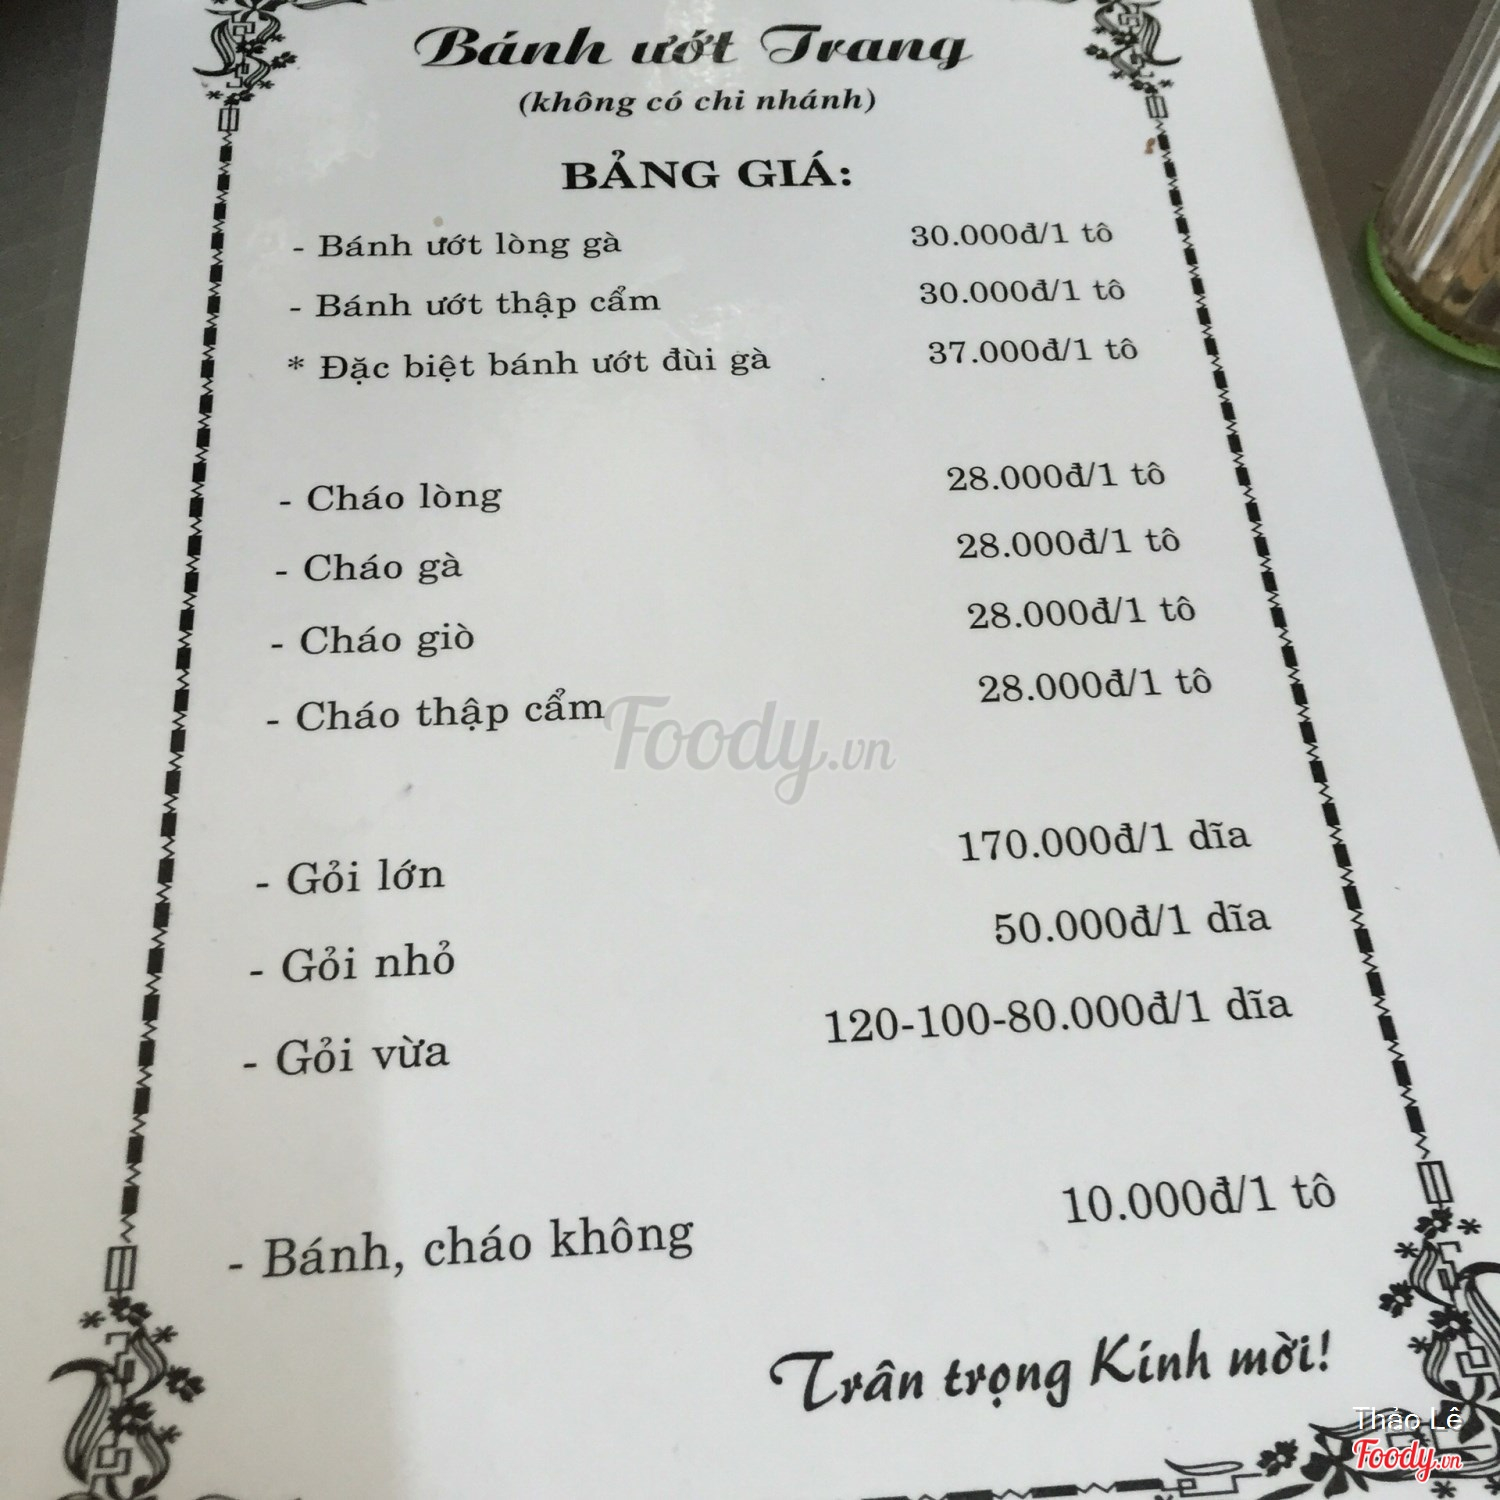 Bánh ướt Trang
(không có chi nhánh)
BẢNG GIÁ:
- Bánh ướt lòng gà 30.000đ/1 tô
- Bánh ướt thập cẩm 30.000đ/1 tô
* Đặc biệt bánh ướt đùi gà 37.000đ/1 tô
- Cháo lòng 28.000đ/1 tô
- Cháo gà 28.000đ/1 tô
- Cháo giò 28.000đ/1 tô
- Cháo thập cẩm 28.000đ/1 tô
Foody.vn
- Gỏi lớn 170.000đ/1 dĩa
- Gỏi nhỏ 50.000đ/1 dĩa
- Gỏi vừa 120-100-80.000đ/1 dĩa
- Bánh, cháo không 10.000đ/1 tô
Trân trọng Kính mời!
Thảo Lê
Foody.vn